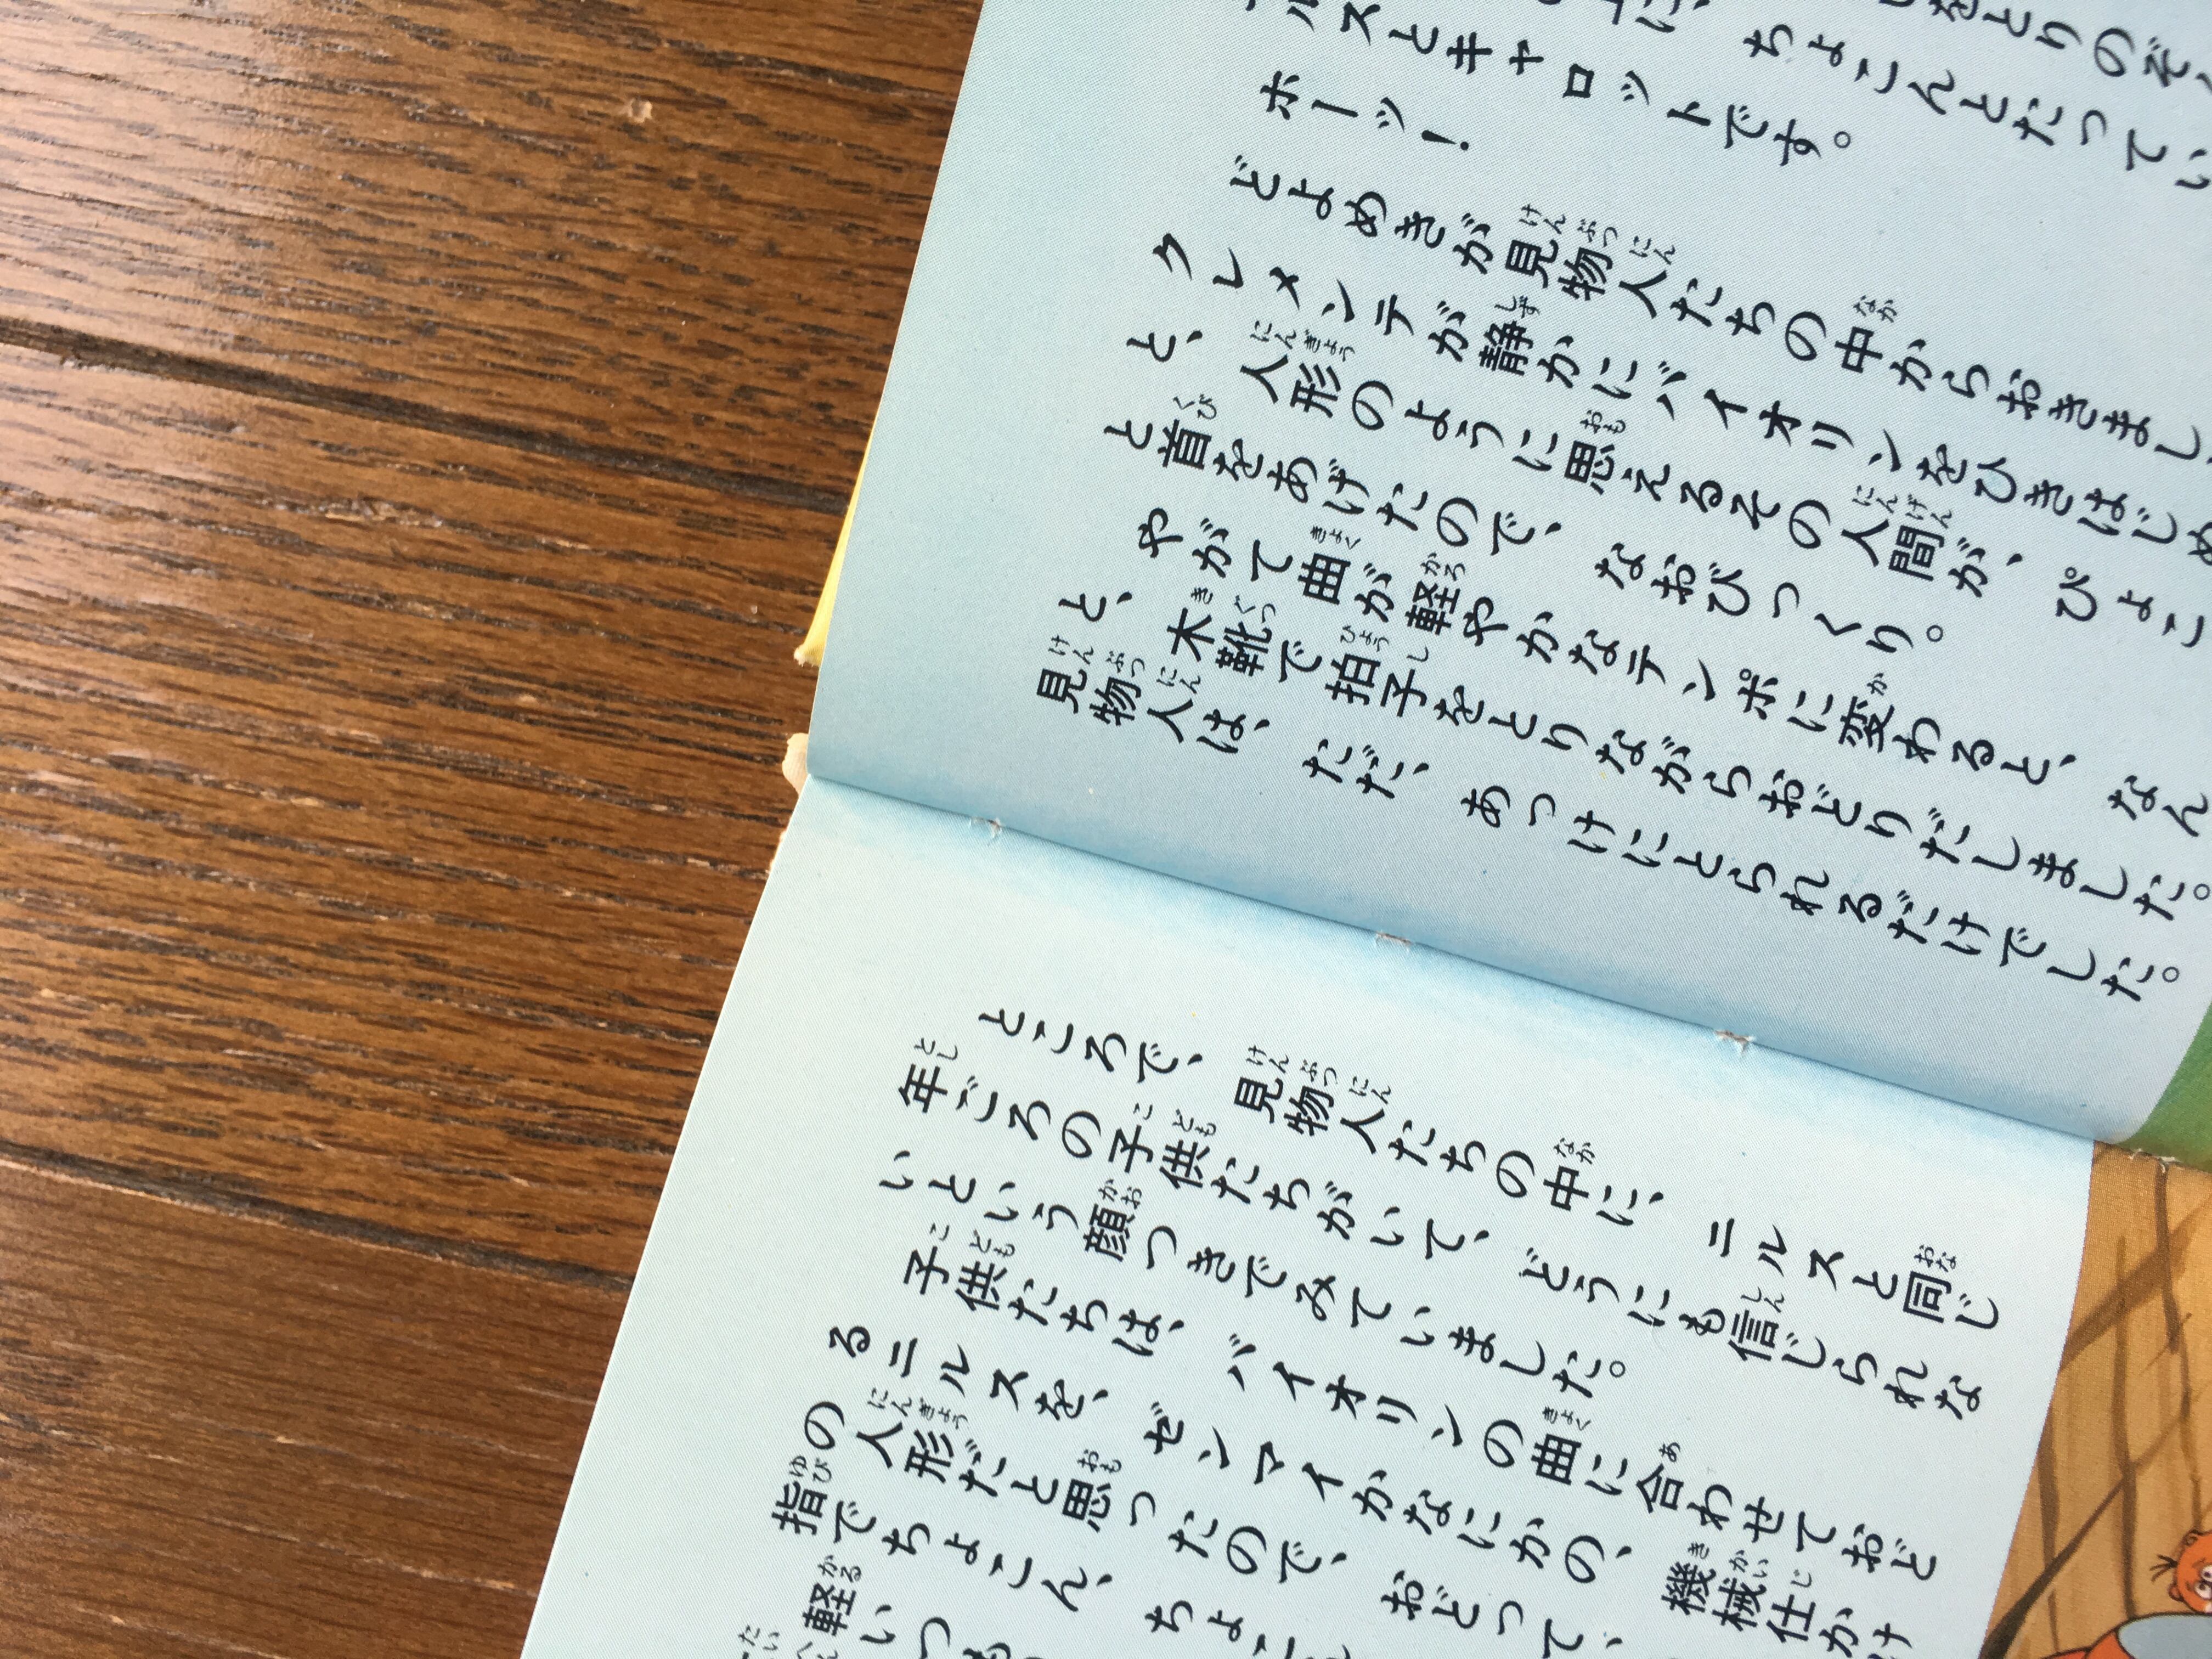 をとりのぞ
に、ちょこんとたってい
ルスとキャロットです。
ホーッ！
どよめきが見物人たちの中からおきまし
クレメンテが静かにバイオリンをひきはじめ
と、人形のように思えるその人間が、ぴょこ
と首をあげたので、なおびっくり。
やがて曲が軽やかなテンポに変わると、なん
と、木靴で拍子をとりながらおどりだしました。
見物人は、ただ、あっけにとられるだけでした。
ところで、見物人たちの中に、ニルスと同じ
年ごろの子供たちがいて、どうにも信じられな
いという顔つきでみていました。
子供たちは、バイオリンの曲に合わせておど
るニルスを、ゼンマイかなにかの、機械仕かけ
の人形だと思ったので、おどって、
指でちょこん、ちょこ
軽いつも